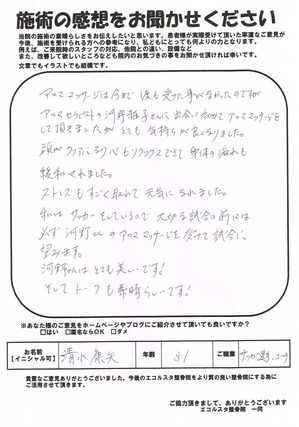 施術の感想をお聞かせください
当院の施術の素晴らしさをお伝えしたいと思います。患者様が実際受けて頂いた率直なご意見が
今後、施術を受けられる方への参考になり、私どもにとっても何よりの力となります。
例えば、ご来院時のスタッフの対応、他院との違い、設備など
また、改善して欲しいところなども院内のお気づきの事をお聞かせ頂ければ幸いです。
文章でもイラストでも結構です。
アロママッサージは今まで1度も受けた事がなかったのですが
アロマセラピストの河野雅子さんに出会い初めてアロママッサージを
して頂きましたがとても気持ちが良くなりました。
頭がクリアになり心もリラックスできて身体の疲れも
緩和されました。
ストレスもすごく取れて元気になれました。
私はサッカーをしているので大切な試合の前には
必ず河野さんのアロママッサージを受けて試合に
望みます。
河野さんはとても美しいです！
そしてトークも素晴らしいです！
※あなた様のご意見をホームページやブログにご紹介させて頂いても良いですか？
□はい □匿名ならOK □ダメ
お名前
【イニシャル可】
清水 康矢
年齢
31
ご職業
サッカー選手、コーチ
貴重なご意見ありがとうございました。今後のエコルスタ整骨院をより質の良い整骨院にする為に
ご活用させて頂きます。
ご協力頂きまして、ありがとうございます
エコルスタ整骨院 一同